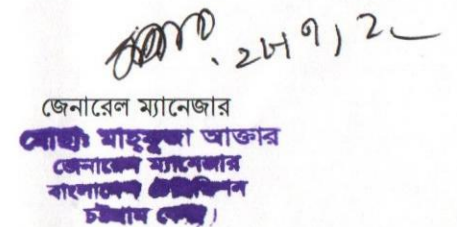 ২৮/৭/১২
জেনারেল ম্যানেজার
মোছাঃ মাহফুজা আক্তার
জেনারেল ম্যানেজার
বাংলাদেশ টেলিভিশন
চট্টগ্রাম কেন্দ্র।